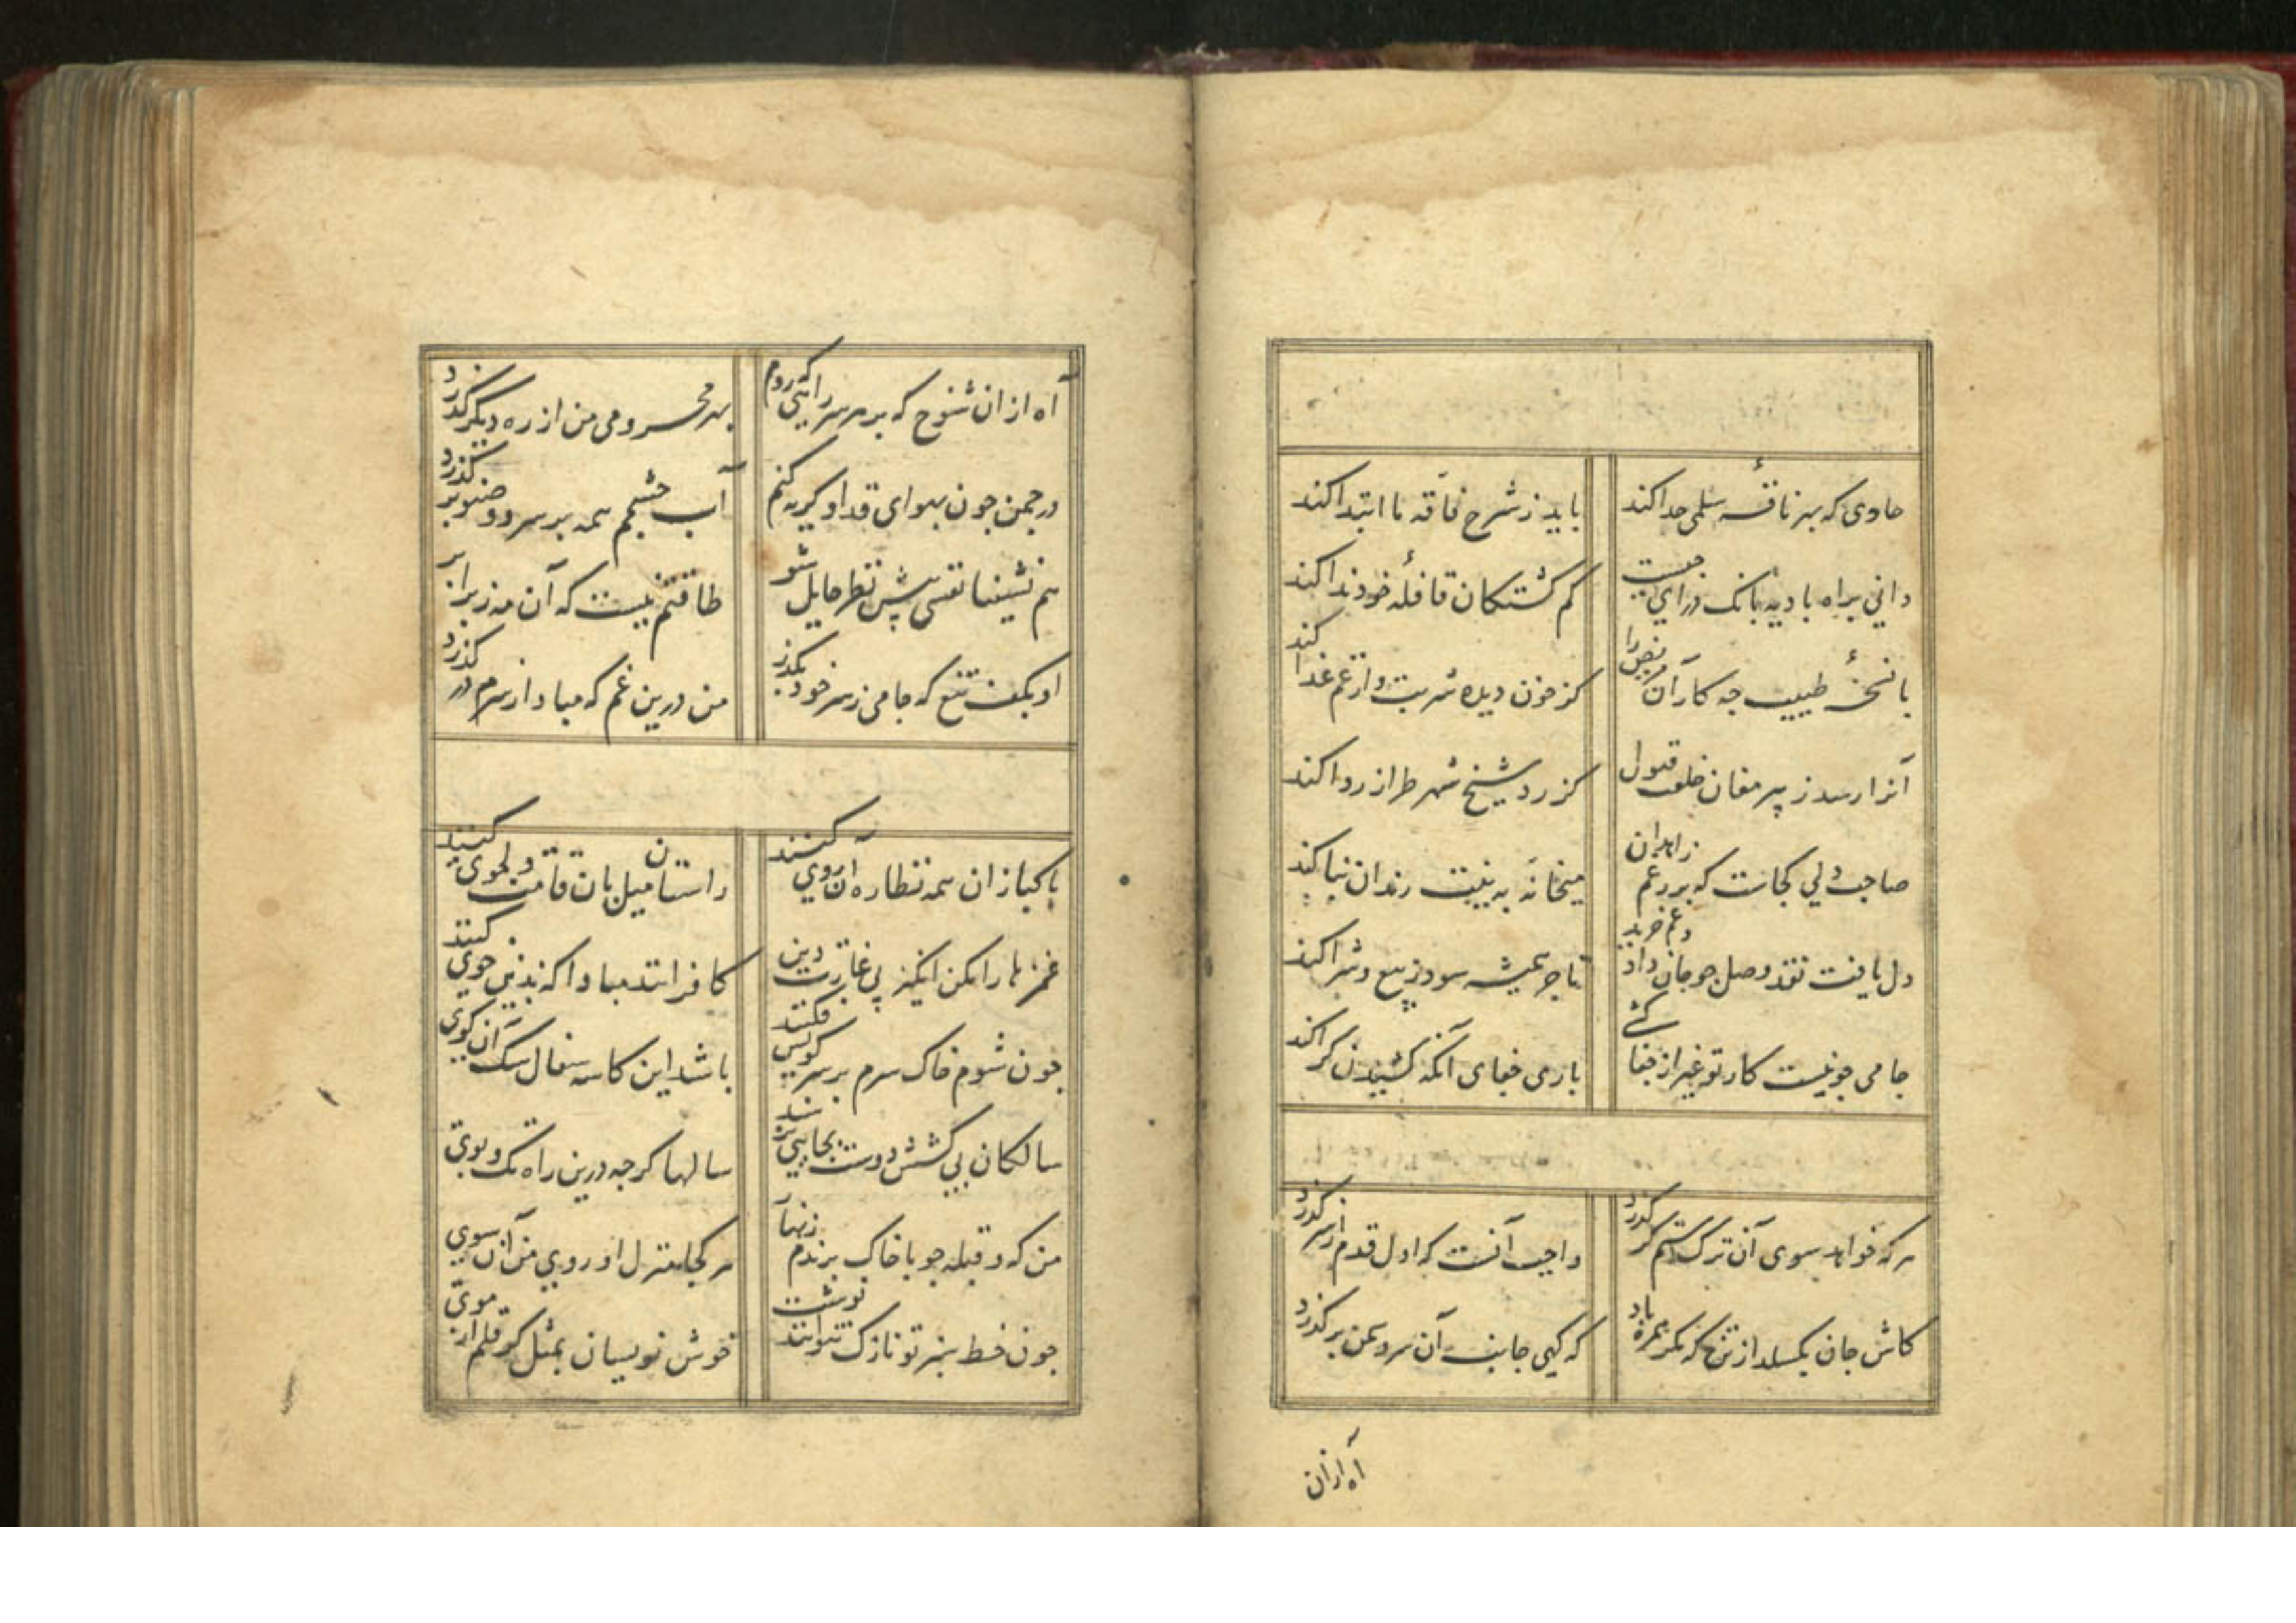 حادی که بهر ناقهٔ سلمی حدا کند
باید ز شرح فاقه ما ابتدا کند
دانی براه بادیه بانک درای چیست
کم کشتکان قافلهٔ خود ندا کند
با نسخهٔ طبیب چه کار آن مریض را
کز خون دیده شربت و از غم غدا کند
آنرا رسد ز پیر مغان خلعت قبول
کز رد شیخ شهر طراز ردا کند
صاحب دلی کجاست که بر رغم زاهدان
میخانه به نیت رندان بنا کند
دل یافت نقد وصل جو جان داد و غم خرید
تاجر همیشه سود ز بیع و شرا کند
جامی جو نیست کار تو غیر از جفا کشی
باری جفای آنکه کشیدن کرا کند
هر که خواهد سوی آن ترک ستمکر کذرد
واجب آنست که اول قدم از سر کذرد
کاش جان بکسلد از تن که مکر همره باد
که کهی جانب آن سرو سمن بر کذرد
آه ازان
آه ازان شوخ که بر هر سر راهی که روم
بهر محرومی من از ره دیکر کذرد
در جمن جون بهوای قد او کریه کنم
آب چشمم همه بر سرو و صنوبر کذرد
هم نشینا نفسی پیش نظر حایل شو
طاقتم نیست که آن مه ز برابر کذرد
او بکف تیغ که جامی ز سر خود بکذر
من درین غم که مبادا ز سرم در کذرد
پاکبازان همه نظاره آن روی کنند
راستان میل بان قامت دلجوی کنند
غمزها را مکن انکیز پی غارت دین
کافرانند مبادا که بدین خوی کنند
جون شوم خاک سرم بر سر کویش فکنند
باشد این کاسه سفال سک آن کوی
سالکان بی کشش دوست بجایی نرسند
سالها کرجه درین راه تک و پوی
من که و قبله جو با خاک برندم زنهار
هر کجا منزل او روی من آن سوی
جون خط سبز تو نازک نتوانند نوشت
خوش نویسان بمثل کر قلم از موی